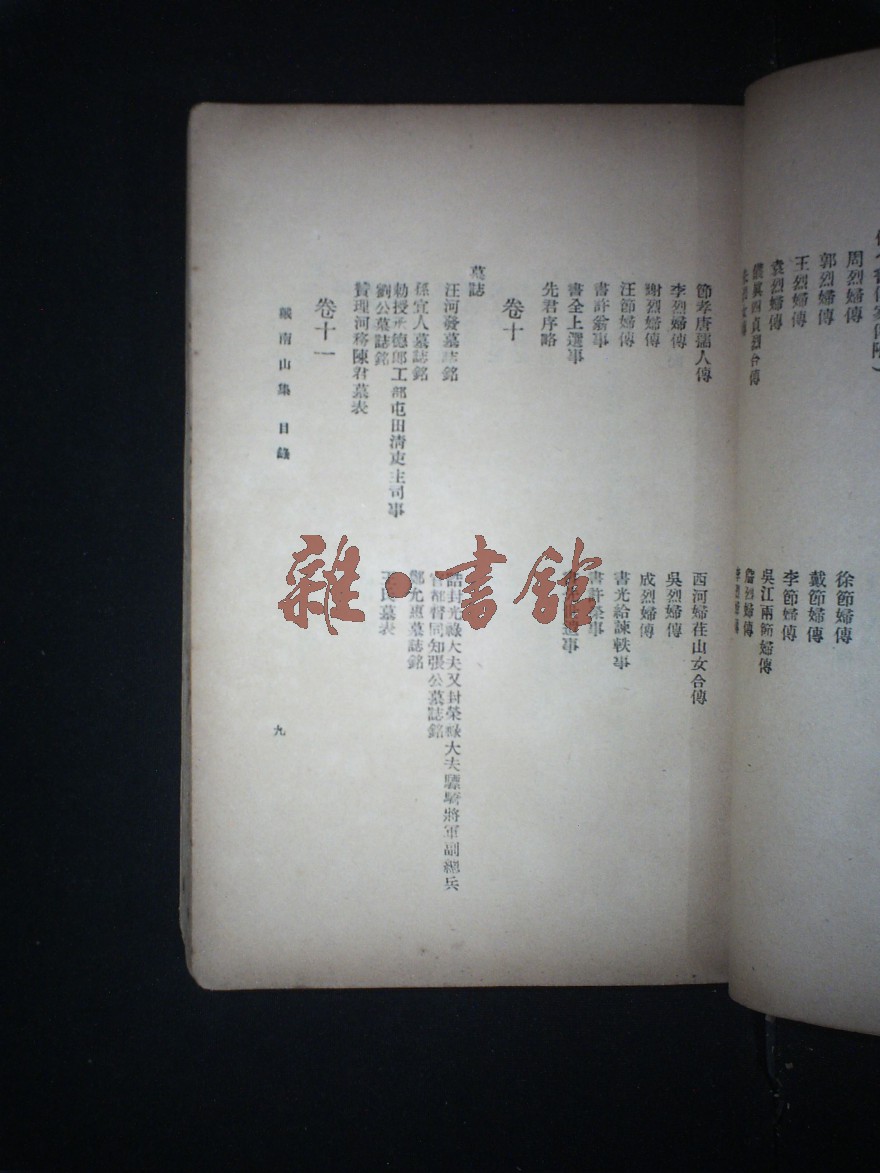 周烈婦傳
郭烈婦傳
王烈婦傳
袁烈婦傳
儀真四貞烈合傳
徐節婦傳
戴節婦傳
李節婦傳
吳江兩節婦傳
詹烈婦傳
李烈婦傳
節孝唐孺人傳
李烈婦傳
謝烈婦傳
汪節婦傳
書許翁事
書全上選事
先君序略
西河婦莊山女合傳
吳烈婦傳
成烈婦傳
書光給諫軼事
書許榮事
卷十
墓誌
汪河發墓誌銘
孫宜人墓誌銘
勅授承德郎工部屯田清吏主司事
劉公墓誌銘
贊理河務陳君墓表
誥封光祿大夫又封榮祿大夫驃騎將軍副總兵
官都督同知張公墓誌銘
鄭允惠墓誌銘
王氏墓表
卷十一
戴南山集 目錄
九
雜·書館